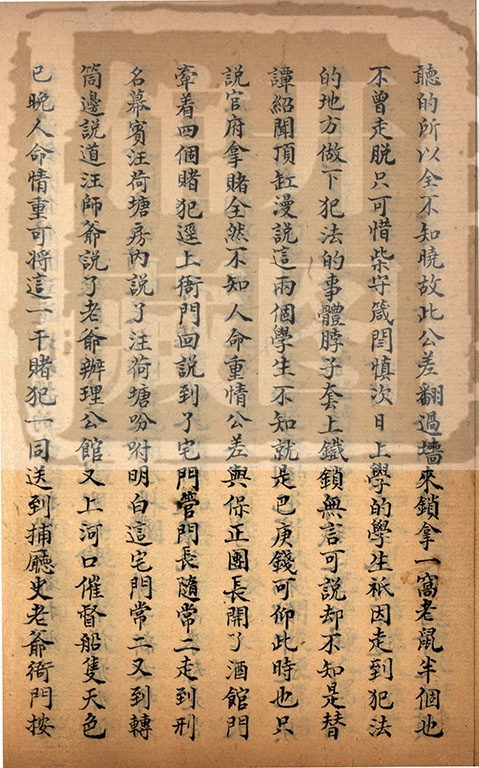 聽的所以全不知曉故此公差翻過墻來鎖拿一窩老鼠半個也
不曾走脫只可惜柴守箴閻慎次日上學的學生祇因走到犯法
的地方做下犯法的事體脖子套上鐵鎖無言可說却不知是替
譚紹聞頂缸漫說這兩個學生不知就是巴庚錢可仰此時也只
說官府拿賭全然不知人命重情公差與保正團長開了酒館門
牽着四個賭犯逕上衙門回說到了宅門管門長隨常二走到刑
名幕賓汪荷塘房內說了汪荷塘吩咐明白這宅門常二又到轉
筒邊說道汪師爺說了老爺辦理公館又上河口催督船隻天色
已晚人命情重可將這一干賭犯一同送到捕廳史老爺衙門按